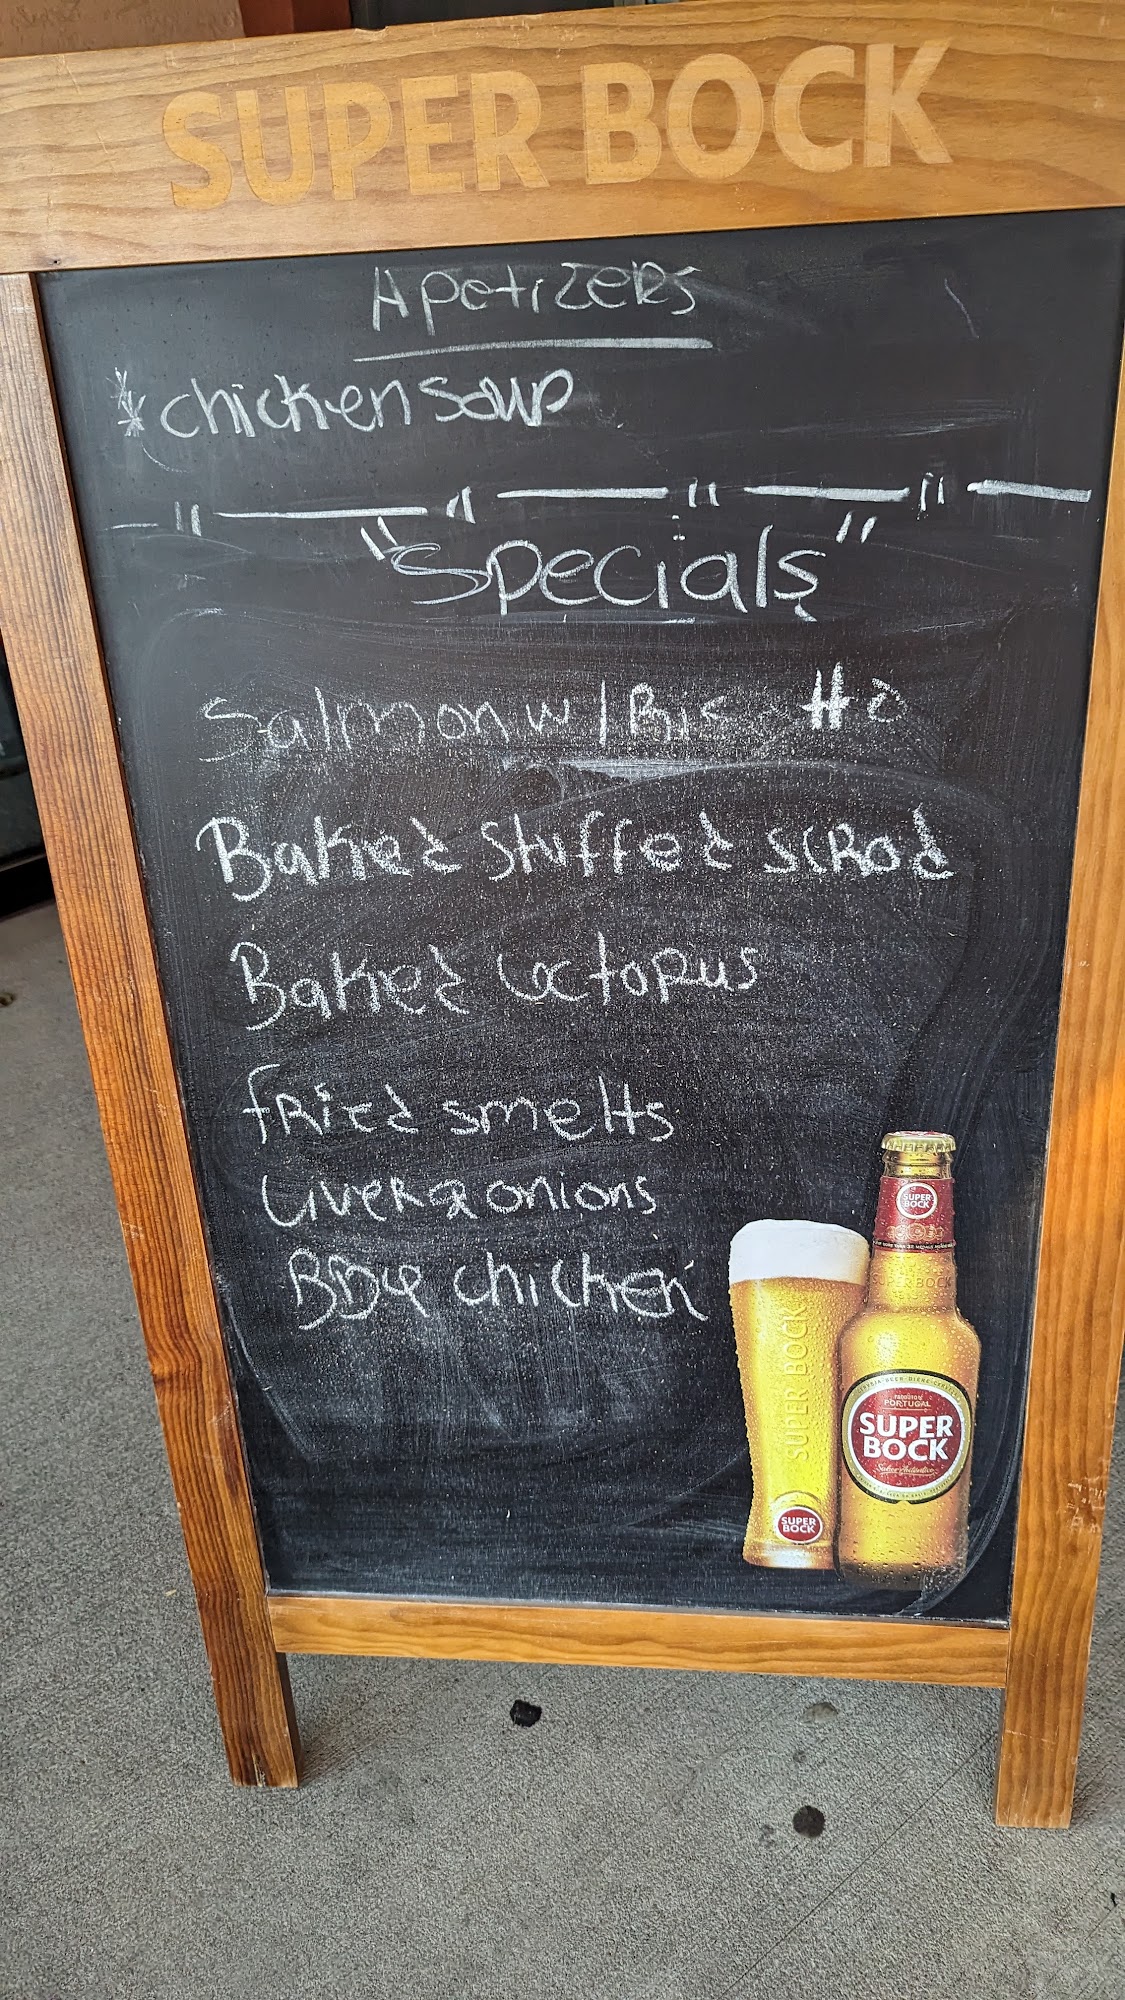 SUPER BOCK
Apetizers
*chicken soup
"Specials"
Salmon w/
Baked Stuffed scRod
Baked octopus
fRied smelts
Liver & onions
BBQ chicken
SUPER BOCK
SUPER BOCK
SUPER BOCK
PORTUGAL
SUPER BOCK
Sabor Autêntico
SUPER BOCK